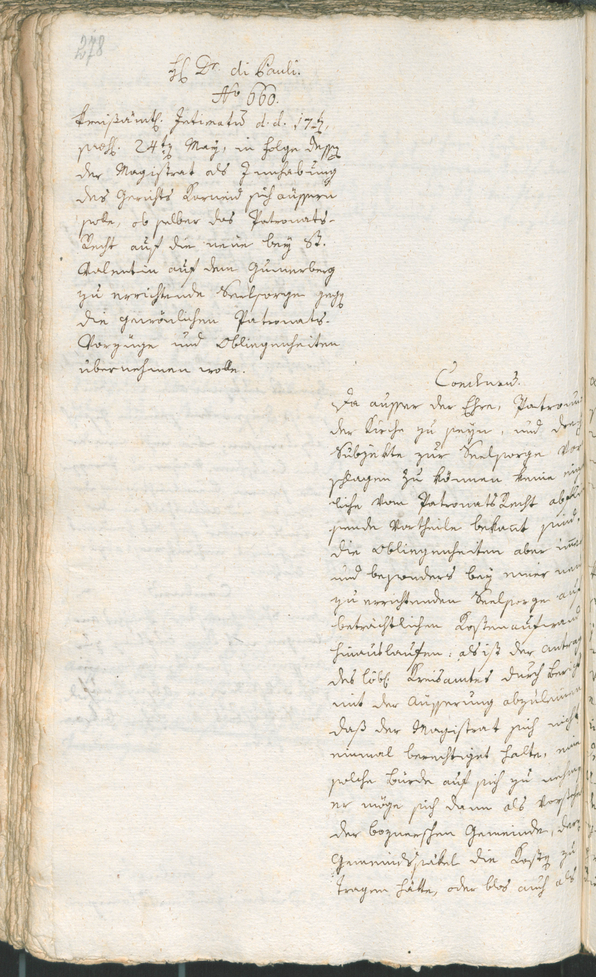 278
H Dr. di Pauli.
No 660.
Kreisämtl. Intimatum d.d. 17t,
praes. 24ten May, in Folge dessen
der Magistrat als Innhabung
des Gerichts Karneid sich äussern
solle, ob selber das Patronats-
Recht auf die neue bey St.
Valentin auf dem Gumerberg
zu errichtende Seelsorge gegen
die gewönlichen Patronats-
Vorzüge und Obliegenheiten
übernehmen wolle.
Conclusum.
Da ausser der Ehre, Patronus
der Kirche zu seyn, und drey
Subjekte zur Seelsorge vor
schlagen zu können keine
liche vom Patronats Recht
sende Vortheile bekant sind,
die Obliegenheiten aber immer
und besonders bey einer neu
zu errichtenden Seelsorge auf
beträchtlichen Kostenaufwand
hinauslaufen, als ist der Antrag
des löbl. Kreisamtes durch Bericht
mit der Äusserung abzulehnen
daß der Magistrat sich nicht
einmal berechtiget halte, eine
solche Bürde auf sich zu nehmen
er möge sich dann als Vorsteher
der boznerschen Gemeinde, deren
Gemeindsäckel die Kosten zu
tragen hätte, oder blos auch als